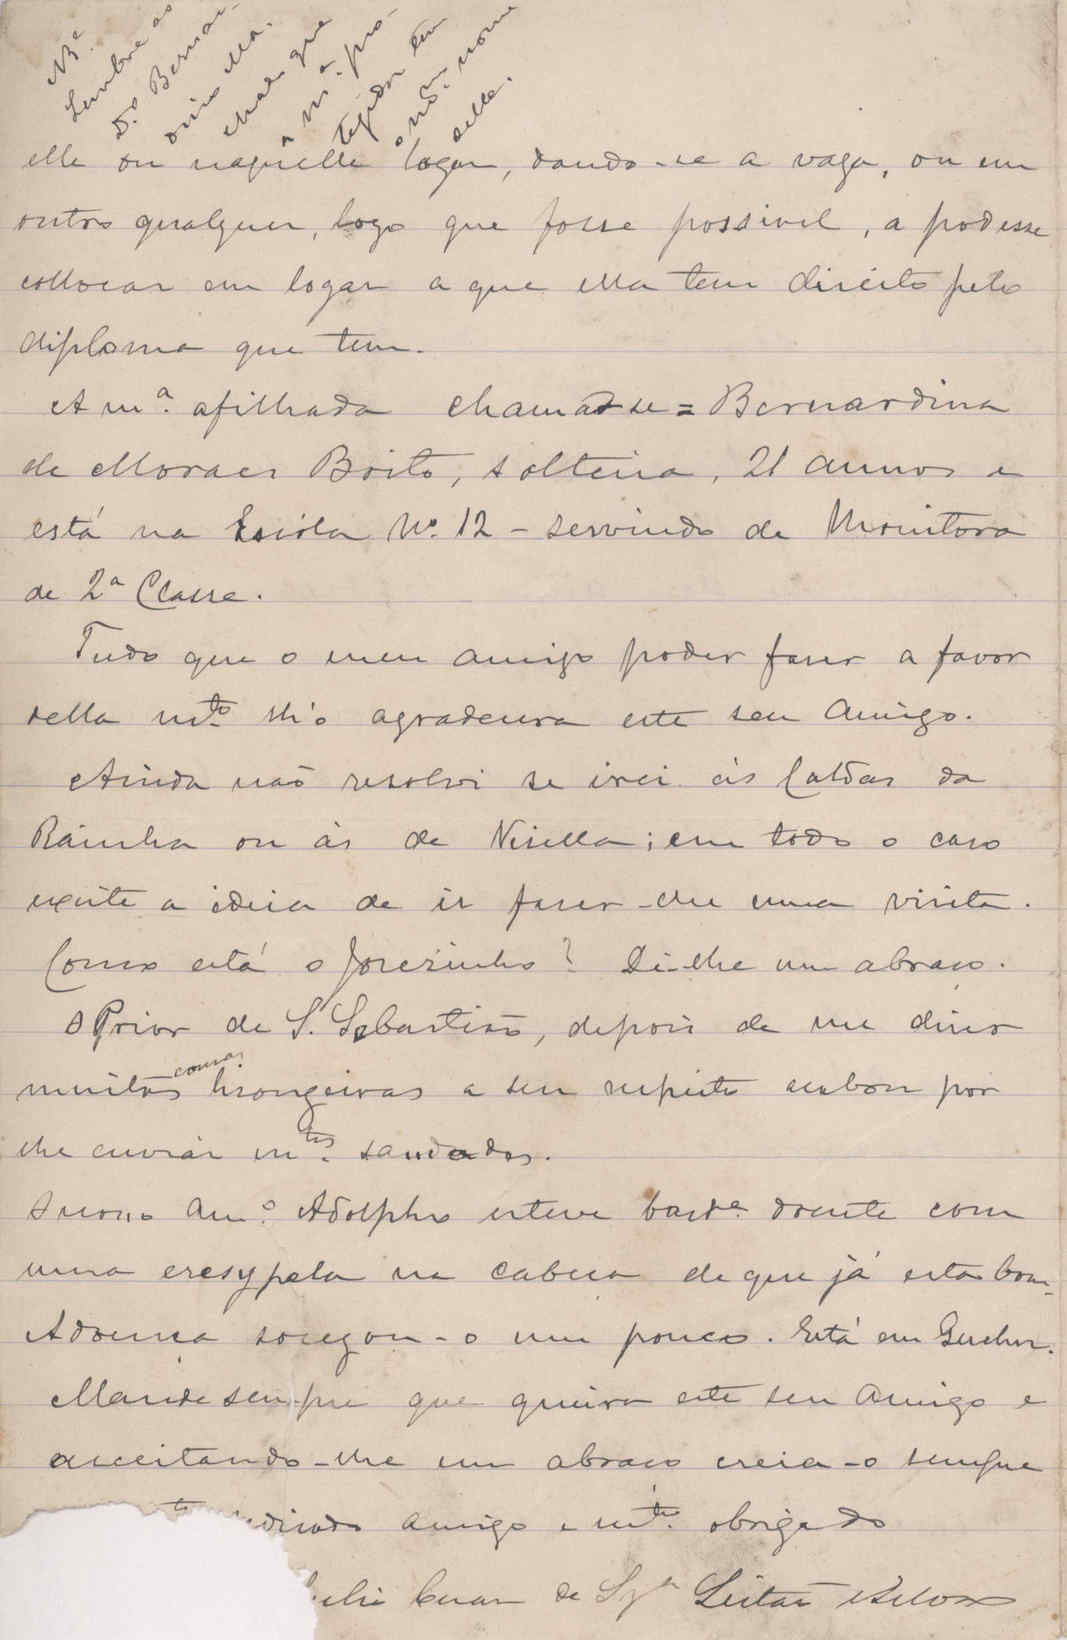 NB.
Lembre ao
D.or Bernar-
dino Ma-
chado que
a m.a pro-
tegida tem
o no- nome
della.
elle ou naquelle logar, dando-se a vaga, ou em
outro qualquer, logo que fosse possivel, a podesse
collocar em logar a que ella tem direito pelo
diploma que tem.
A m.a afilhada chama-se = Bernardina
de Moraes Brito, solteira, 21 annos e
está na Escóla N.º 12 - servindo de Monitora
de 2.a Classe.
Tudo que o meu amigo poder fazer a favor
della m.to lh'o agradecera este seu amigo.
Ainda não resolvi se irei ás Caldas da
Rainha ou ás de Visella; em todo o caso
existe a ideia de ir fazer-lhe uma visita.
Como está o Josésinho? Dê-lhe um abraço.
O Prior de S. Sebastião, depois de me dizer
muitas cousas lisongeiras a seu respeito acabou por
lhe enviar m.tas saudades.
O nosso am.o Adolpho esteve bast.e doente com
uma eresypela na cabeça de que já está bom.
A doença socegou-o um pouco. Está em
Mande sempre que queira este seu amigo e
acceitando-lhe um abraço creia-o sempre
amigo e m.to obrigado
Cesar de Leitão